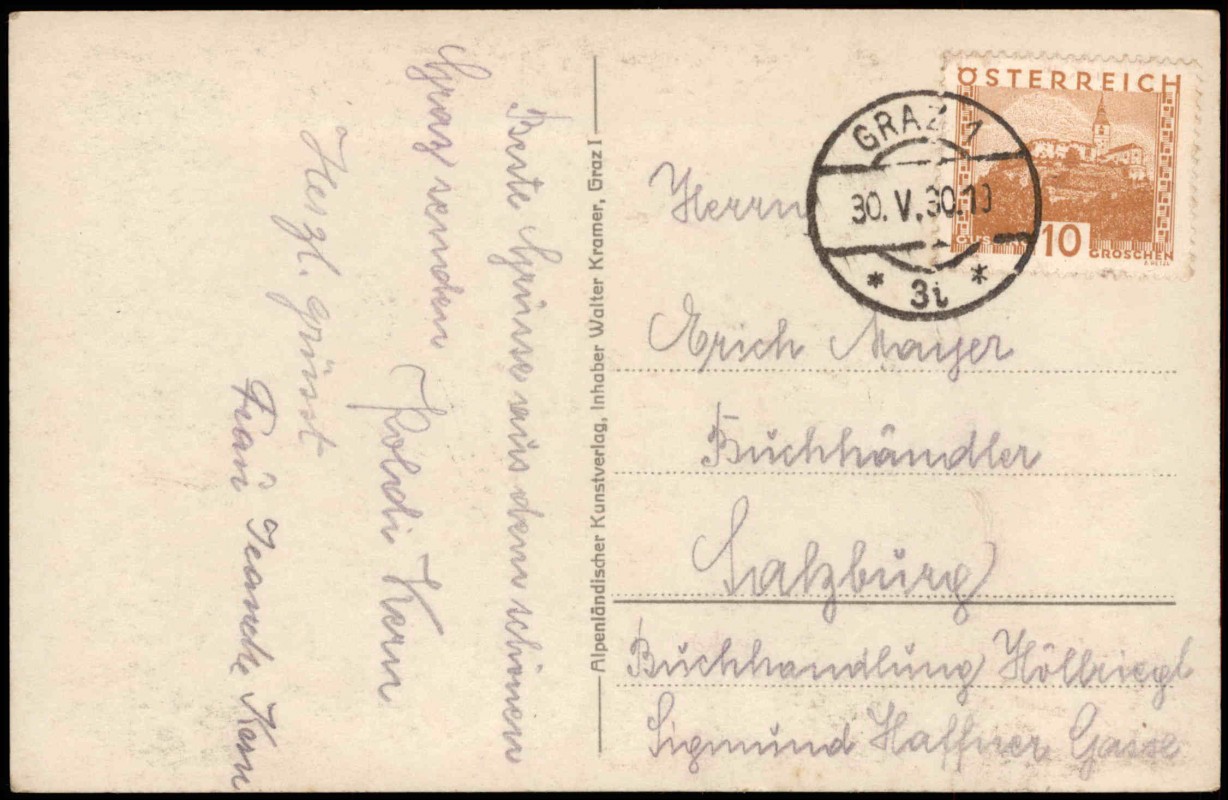 Beste Grüsse aus dem schönen
Graz senden
Poldi Kern
Herzl. grüsst
Kern
Alpenländischer Kunstverlag, Inhaber Walter Kramer, Graz I
GRAZ 1
30.V.30.19
* 3i *
ÖSTERREICH
10
GROSCHEN
Herrn
Erich Mayer
Buchhändler
Salzburg
Buchhandlung Höllriegl
Sigmund Haffner Gasse